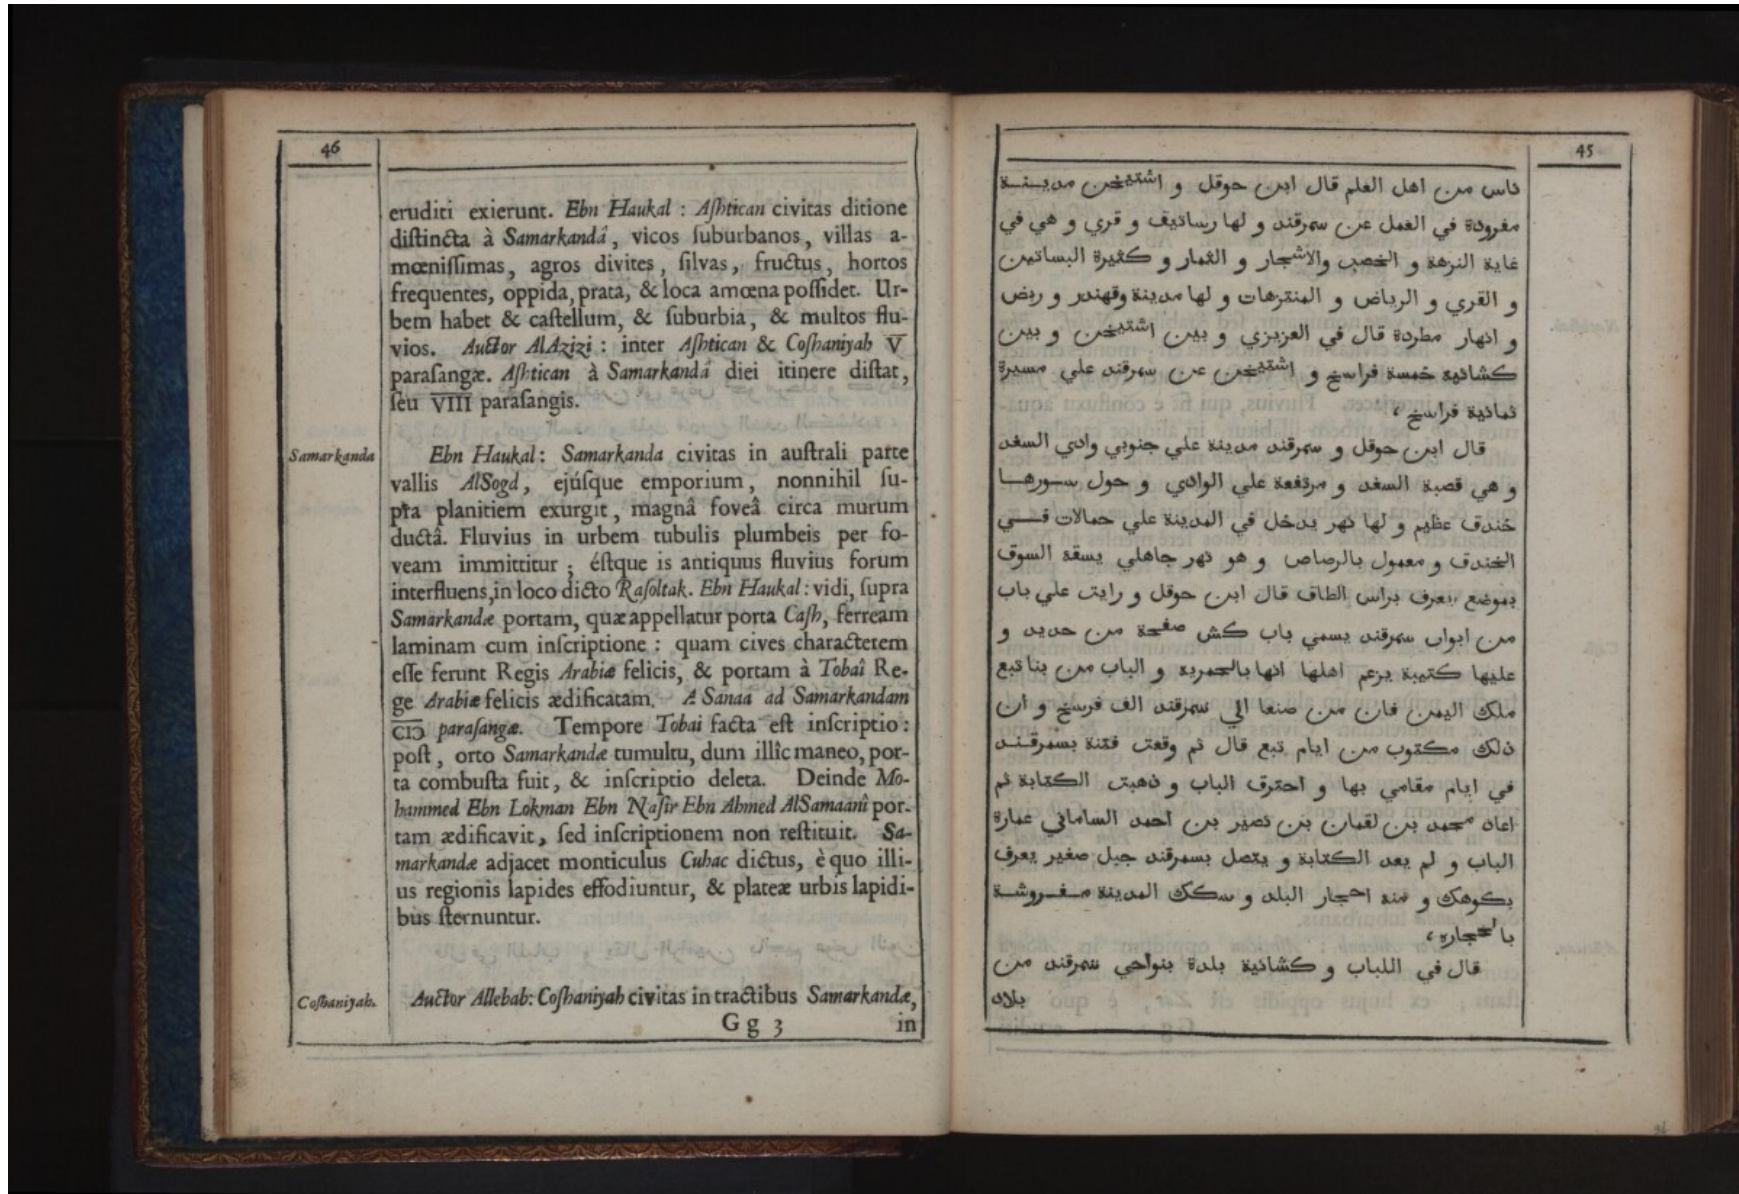 46
eruditi exierunt. Ebn Haukal : Aſhtican civitas ditione
diſtincta à Samarkandâ, vicos ſuburbanos, villas a-
mœniſſimas, agros divites, ſilvas, fructus, hortos
frequentes, oppida, prata, & loca amœna poſſidet. Ur-
bem habet & caſtellum, & ſuburbia, & multos flu-
vios. Auctor AlAzizi : inter Aſhtican & Coſhaniyah V̅
paraſangæ. Aſhtican à Samarkandâ diei itinere diſtat,
ſeu V̅I̅I̅I̅ paraſangis.
Samarkanda
Ebn Haukal : Samarkanda civitas in auſtrali parte
vallis AlSogd, ejúſque emporium, nonnihil ſu-
pra planitiem exurgit, magnâ foveâ circa murum
ductâ. Fluvius in urbem tubulis plumbeis per fo-
veam immittitur ; éſtque is antiquus fluvius forum
interfluens, in loco dicto Raſoltak. Ebn Haukal : vidi, ſupra
Samarkandæ portam, quæ appellatur porta Caſh, ferream
laminam cum inſcriptione : quam cives characterem
eſſe ferunt Regis Arabiæ felicis, & portam à Tobaî Re-
ge Arabiæ felicis ædificatam. A Sanaa ad Samarkandam
C̅I̅Ɔ̅ paraſangæ. Tempore Tobai facta eſt inſcriptio :
poſt, orto Samarkandæ tumultu, dum illîc maneo, por-
ta combuſta fuit, & inſcriptio deleta. Deinde Mo-
hammed Ebn Lokman Ebn Naſir Ebn Ahmed AlSamaanî por-
tam ædificavit, ſed inſcriptionem non reſtituit. Sa-
markandæ adjacet monticulus Cuhac dictus, è quo illi-
us regionis lapides effodiuntur, & plateæ urbis lapidi-
bus ſternuntur.
Coſhaniyah.
Auctor Allebab : Coſhaniyah civitas in tractibus Samarkandæ,
G g 3 in
45
ناس من اهل العلم قال ابن حوقل و اشتيخن مدينة
مفرودة في العمل عن سمرقند و لها رساتيف و قري و هي في
غاية النزهة و الخصب والاشجار و الثمار و كثيرة البساتين
و القري و الرياض و المنتزهات و لها مدينة وقهندر و ربض
و انهار مطردة قال في العزيزي و بين اشتيخن و بين
كشانية خمسة فراسخ و اشتيخن عن سمرقند علي مسيرة
ثمانية فراسخ ،
قال ابن حوقل و سمرقند مدينة علي جنوبي وادي السغد
و هي قصبة السغد و مرتفعة علي الوادي و حول سورها
خندق عظيم و لها نهر يدخل في المدينة علي حمالات في
الخندف و معمول بالرصاص و هو نهر جاهلي يسقة السوق
بموضع يعرف براس الطاف قال ابن حوقل و رايت علي باب
من ابواب سمرقند يسمي باب كش صفحة من حديد و
عليها كتيبة يزعم اهلها انها بالحمرية و الباب من بنا تبع
ملك اليمن فان من صنعا الي سمرقند الف فرسخ و ان
ذلك مكتوب من ايام تبع قال ثم وقعت فتنة بسمرقند
في ايام مقامي بها و احترف الباب و ذهبت الكتابة ثم
اعاد محمد بن لقمان بن نصير بن احمد الساماني عمارة
الباب و لم يعد الكتابة و يتصل بسمرقند جبل صغير يعرف
بكوهك و منه احجار البلد و سكك المدينة مفروشة
بالحجاره ،
قال في اللباب و كشانية بلدة بنواحي سمرقند من
بلاد